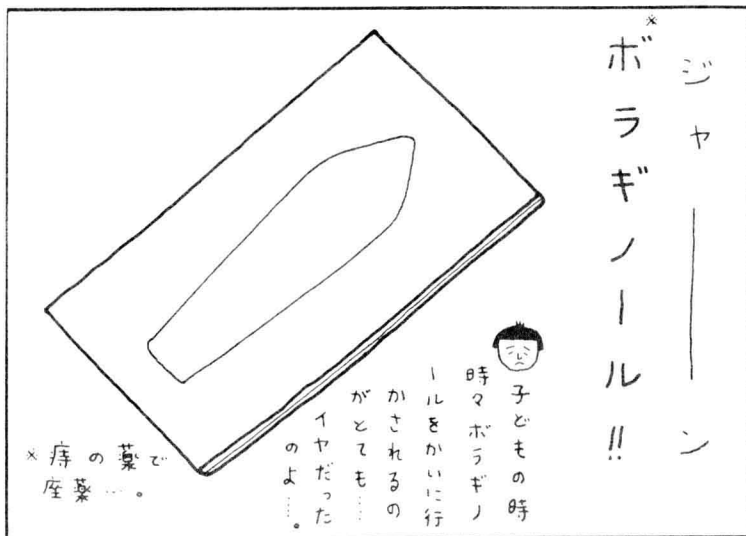 ジャーーーン
※ボラギノール!!
子どもの時
時々ボラギノ
ールをかいに行
かされるの
がとても……
イヤだった
のよ……。
※痔の薬で
座薬…。